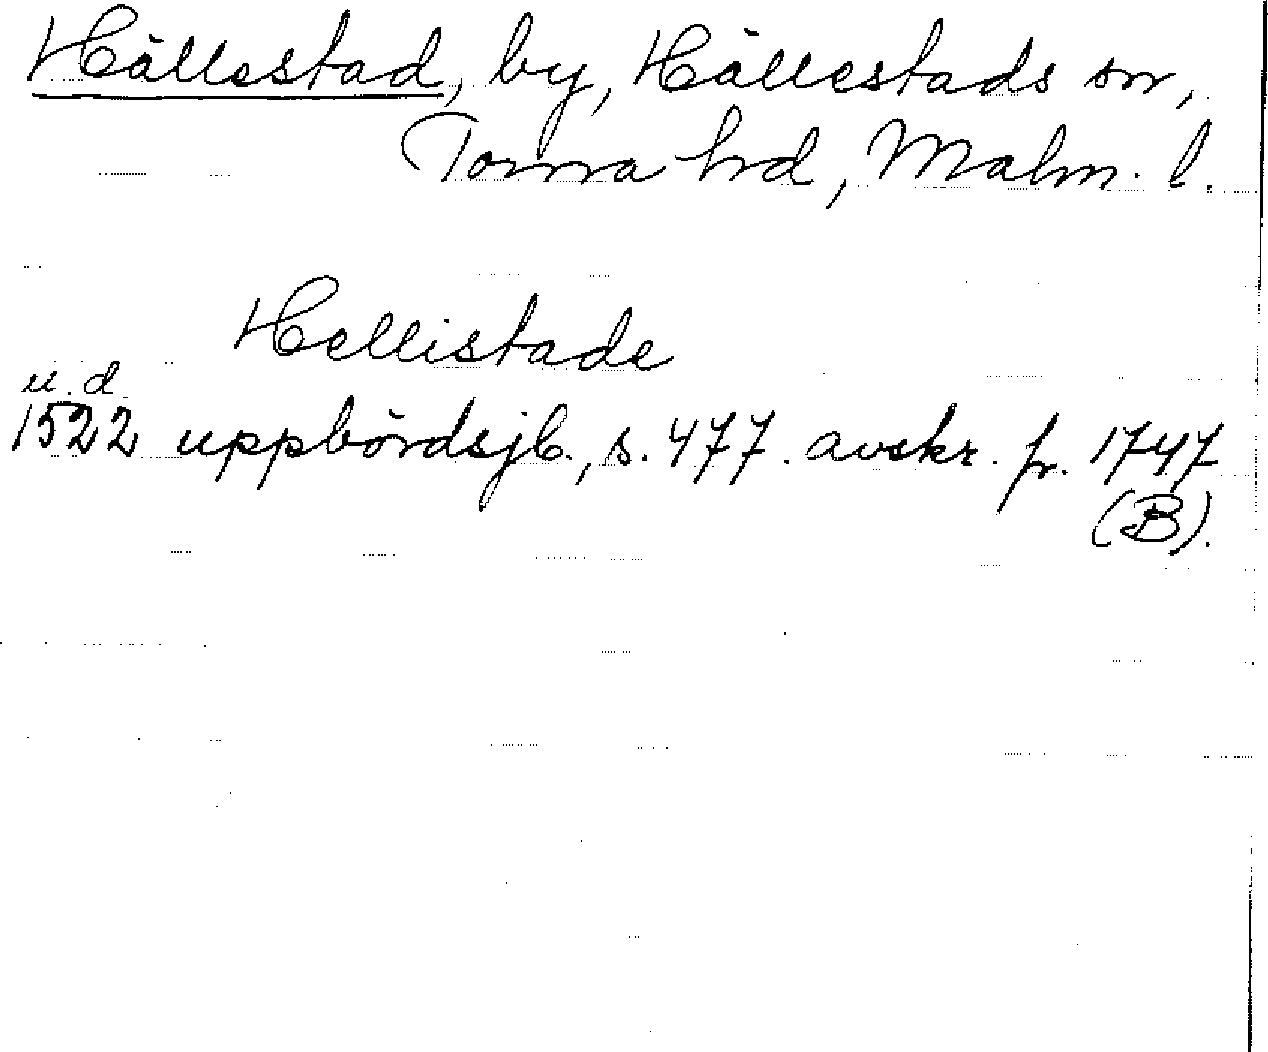 Hällestad, by, Hällestads sn,
Torna hrd, Malm. l.
Hellistade
u. d.
1522 uppbördsjb., s. 477. avskr. fr. 1747
(B).